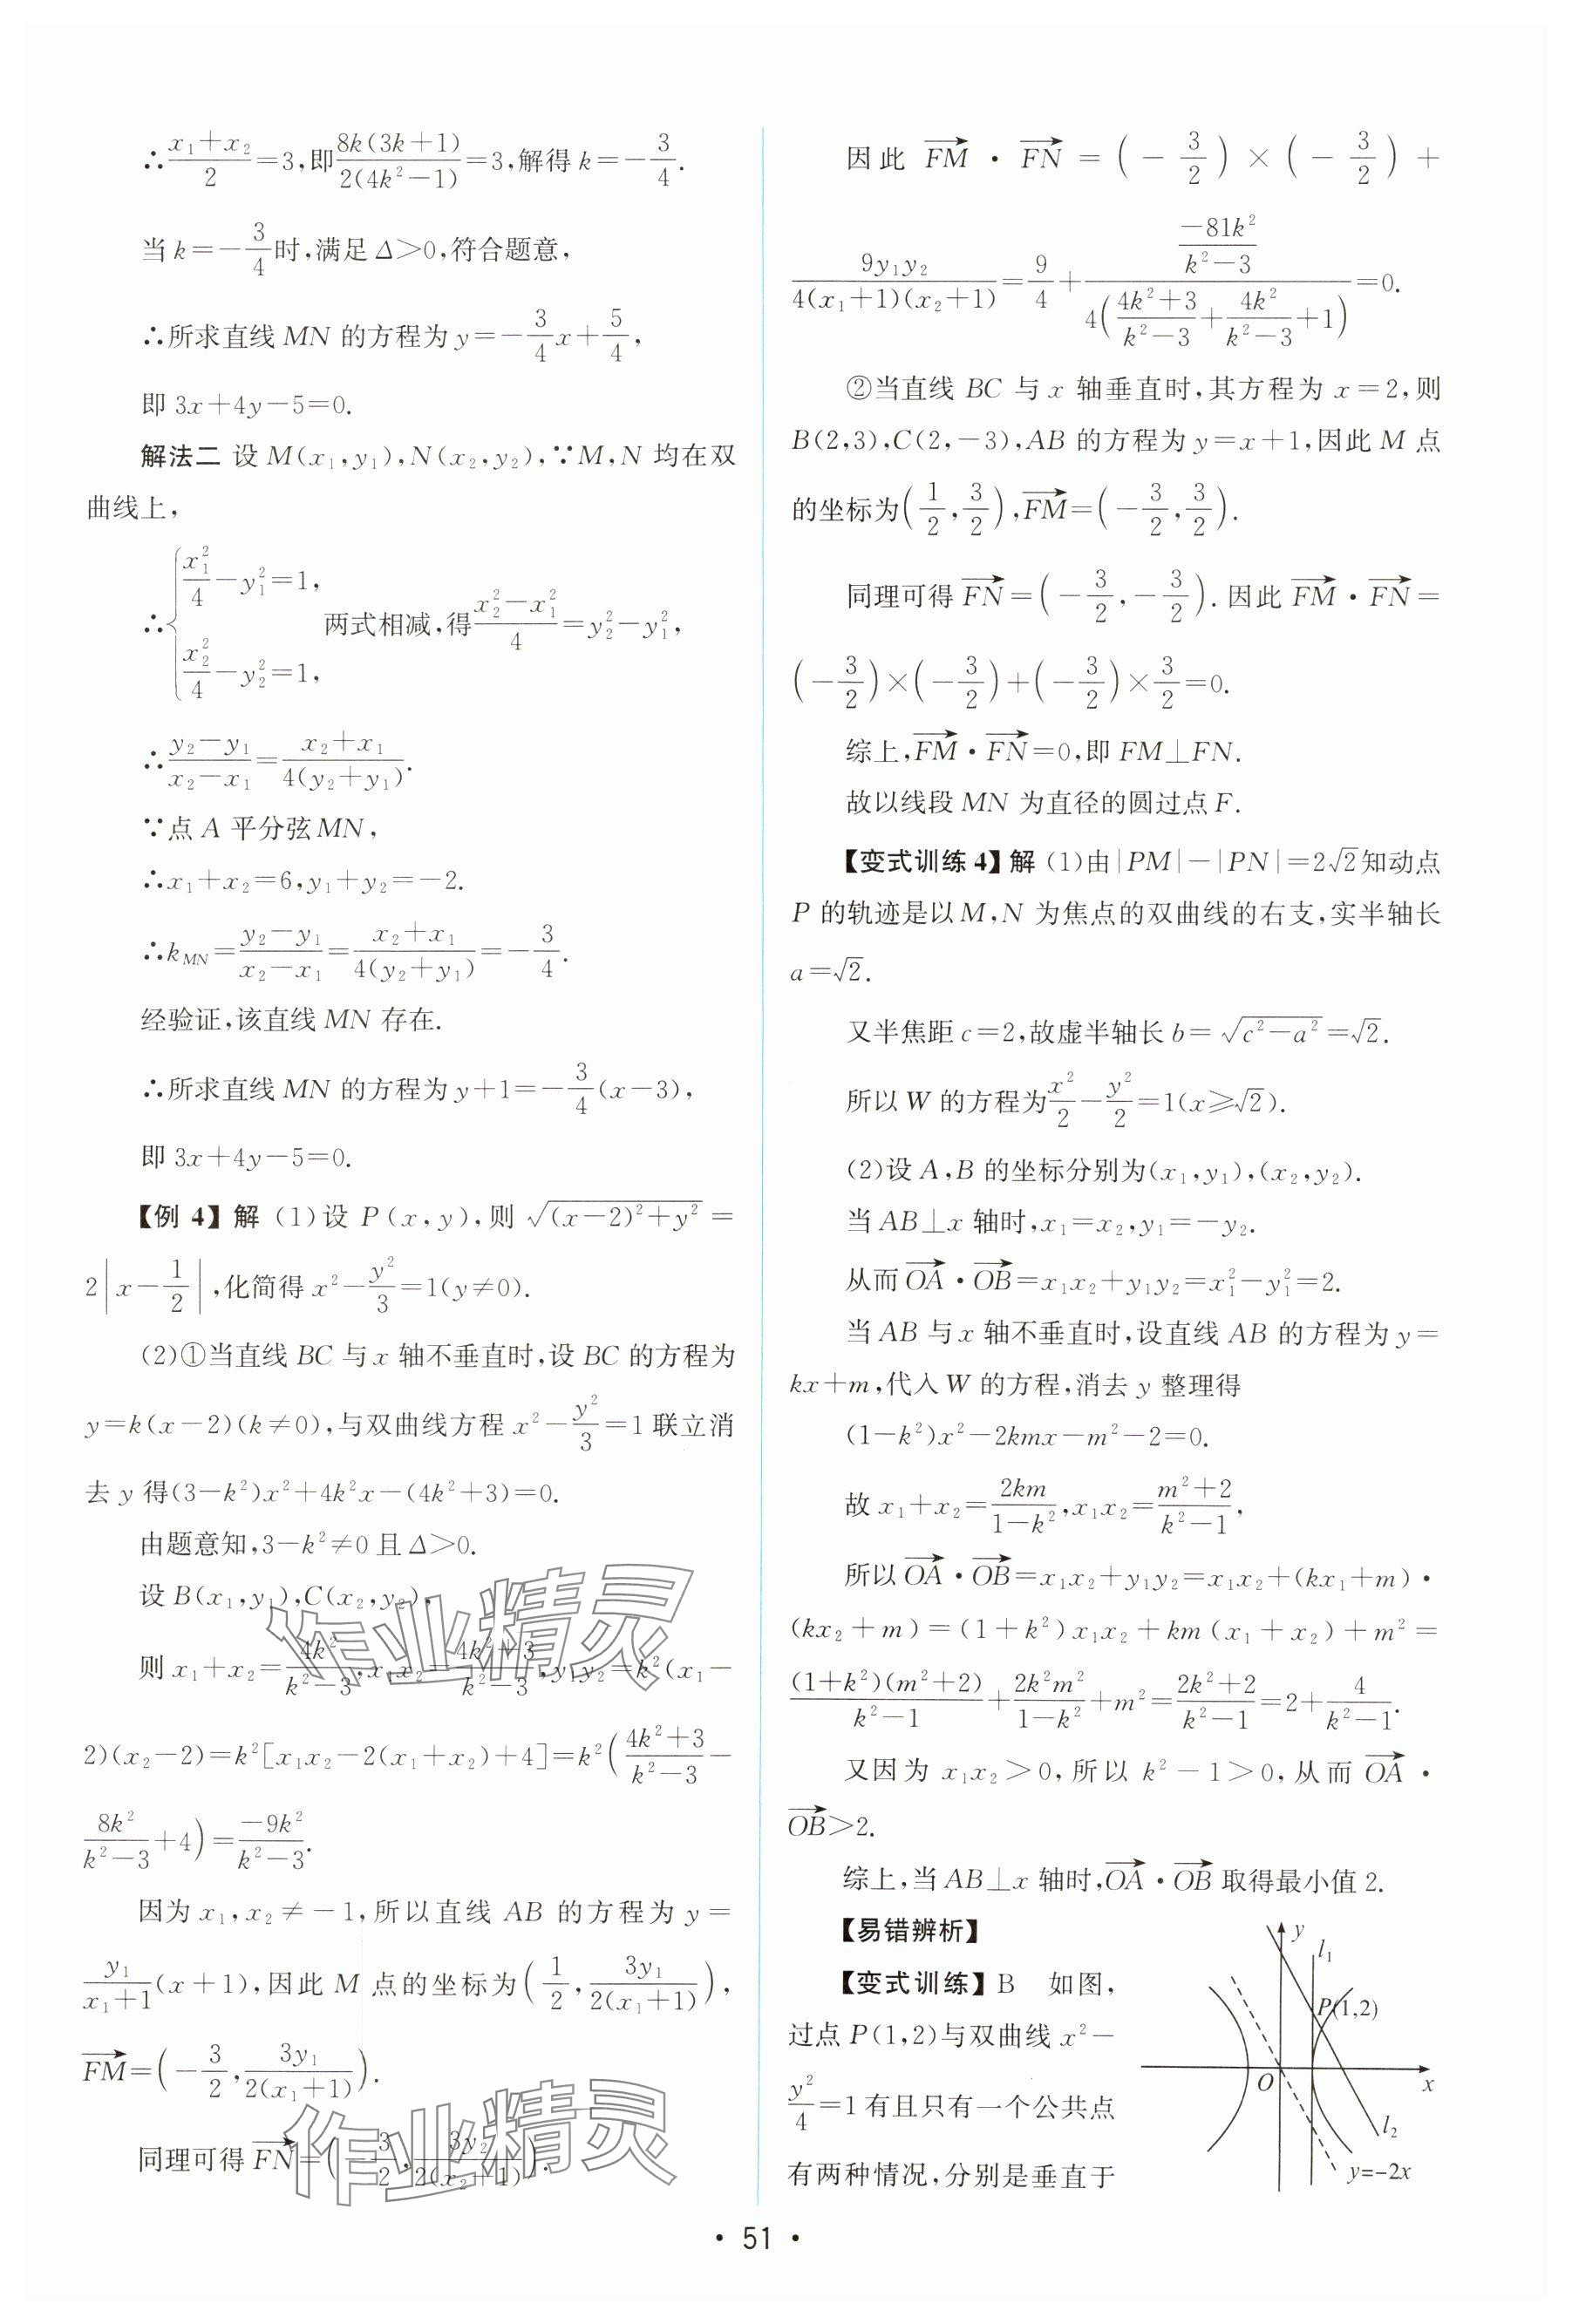 ∴(x₁+x₂)/2=3,即8k(3k+1)/2(4k²-1)=3,解得k=-3/4.
当k=-3/4时,满足Δ>0,符合题意,
∴所求直线MN的方程为y=-3/4x+5/4,
即3x+4y-5=0.
解法二 设M(x₁,y₁),N(x₂,y₂),∵M,N均在双
曲线上,
∴{x₁²/4-y₁²=1, x₂²/4-y₂²=1, 两式相减,得(x₂²-x₁²)/4=y₂²-y₁²,
∴(y₂-y₁)/(x₂-x₁)=(x₂+x₁)/4(y₂+y₁).
∵点A平分弦MN,
∴x₁+x₂=6,y₁+y₂=-2.
∴k_MN=(y₂-y₁)/(x₂-x₁)=(x₂+x₁)/4(y₂+y₁)=-3/4.
经验证,该直线MN存在.
∴所求直线MN的方程为y+1=-3/4(x-3),
即3x+4y-5=0.
【例4】解 (1)设P(x,y),则√((x-2)²+y²)=
2|x-1/2|,化简得x²-y²/3=1(y≠0).
(2)①当直线BC与x轴不垂直时,设BC的方程为
y=k(x-2)(k≠0),与双曲线方程x²-y²/3=1联立消
去y得(3-k²)x²+4k²x-(4k²+3)=0.
由题意知,3-k²≠0且Δ>0.
设B(x₁,y₁),C(x₂,y₂),
则x₁+x₂=4k²/(k²-3),x₁x₂=(4k²+3)/(k²-3),y₁y₂=k²(x₁-
2)(x₂-2)=k²[x₁x₂-2(x₁+x₂)+4]=k²((4k²+3)/(k²-3)-
8k²/(k²-3)+4)=-9k²/(k²-3).
因为x₁,x₂≠-1,所以直线AB的方程为y=
y₁/(x₁+1)(x+1),因此M点的坐标为(1/2,3y₁/2(x₁+1)),
FM→=(-3/2,3y₁/2(x₁+1)).
同理可得FN→=(-3/2,3y₂/2(x₂+1)).
因此FM→·FN→=(-3/2)×(-3/2)+
9y₁y₂/4(x₁+1)(x₂+1)=9/4+(-81k²/(k²-3))/4((4k²+3)/(k²-3)+4k²/(k²-3)+1)=0.
②当直线BC与x轴垂直时,其方程为x=2,则
B(2,3),C(2,-3),AB的方程为y=x+1,因此M点
的坐标为(1/2,3/2),FM→=(-3/2,3/2).
同理可得FN→=(-3/2,-3/2).因此FM→·FN→=
(-3/2)×(-3/2)+(-3/2)×3/2=0.
综上,FM→·FN→=0,即FM⊥FN.
故以线段MN为直径的圆过点F.
【变式训练4】解 (1)由|PM|-|PN|=2√2知动点
P的轨迹是以M,N为焦点的双曲线的右支,实半轴长
a=√2.
又半焦距c=2,故虚半轴长b=√(c²-a²)=√2.
所以W的方程为x²/2-y²/2=1(x≥√2).
(2)设A,B的坐标分别为(x₁,y₁),(x₂,y₂).
当AB⊥x轴时,x₁=x₂,y₁=-y₂.
从而OA→·OB→=x₁x₂+y₁y₂=x₁²-y₁²=2.
当AB与x轴不垂直时,设直线AB的方程为y=
kx+m,代入W的方程,消去y整理得
(1-k²)x²-2kmx-m²-2=0.
故x₁+x₂=2km/(1-k²),x₁x₂=(m²+2)/(k²-1),
所以OA→·OB→=x₁x₂+y₁y₂=x₁x₂+(kx₁+m)·
(kx₂+m)=(1+k²)x₁x₂+km(x₁+x₂)+m²=
(1+k²)(m²+2)/(k²-1)+2k²m²/(1-k²)+m²=(2k²+2)/(k²-1)=2+4/(k²-1).
又因为x₁x₂>0,所以k²-1>0,从而OA→·
OB→>2.
综上,当AB⊥x轴时,OA→·OB→取得最小值2.
【易错辨析】
【变式训练】B 如图,
过点P(1,2)与双曲线x²-
y²/4=1有且只有一个公共点
有两种情况,分别是垂直于
y
l₁
P(1,2)
O
x
l₂
y=-2x
作业精灵
作业精灵
· 51 ·